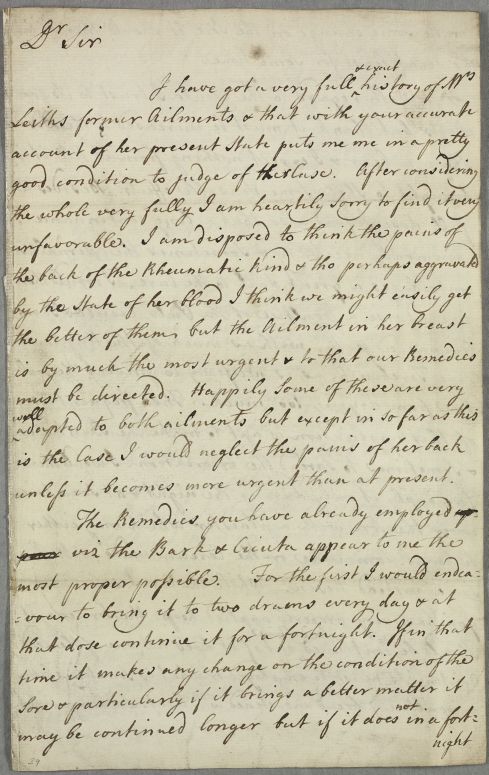 Dr Sir
I have got a very full & exact history of Mrs
Leiths former Ailments & that with your accurate
account of her present State puts me me in a pretty
good condition to judge of the Case. After considering
the whole very fully I am heartily sorry to find it very
unfavorable. I am disposed to think the pains of
the back of the Rheumatic kind & tho perhaps aggravated
by the State of her blood I think we might easily get
the better of them, but the Ailment in her breast
is by much the most urgent & to that our Remedies
must be directed. Happily some of these are very
well adapted to both ailments but except in so far as this
is the Case I would neglect the pains of her back
unless it becomes more urgent than at present.
The Remedies you have already employed
viz the Bark & Cicuta appear to me the
most proper possible. For the first I would endea-
=vour to bring it to two drams every day & at
that dose continue it for a fortnight. If in that
time it makes any change on the condition of the
Sore & particularly if it brings a better matter it
may be continued longer but if it does not in a fort-
night
39